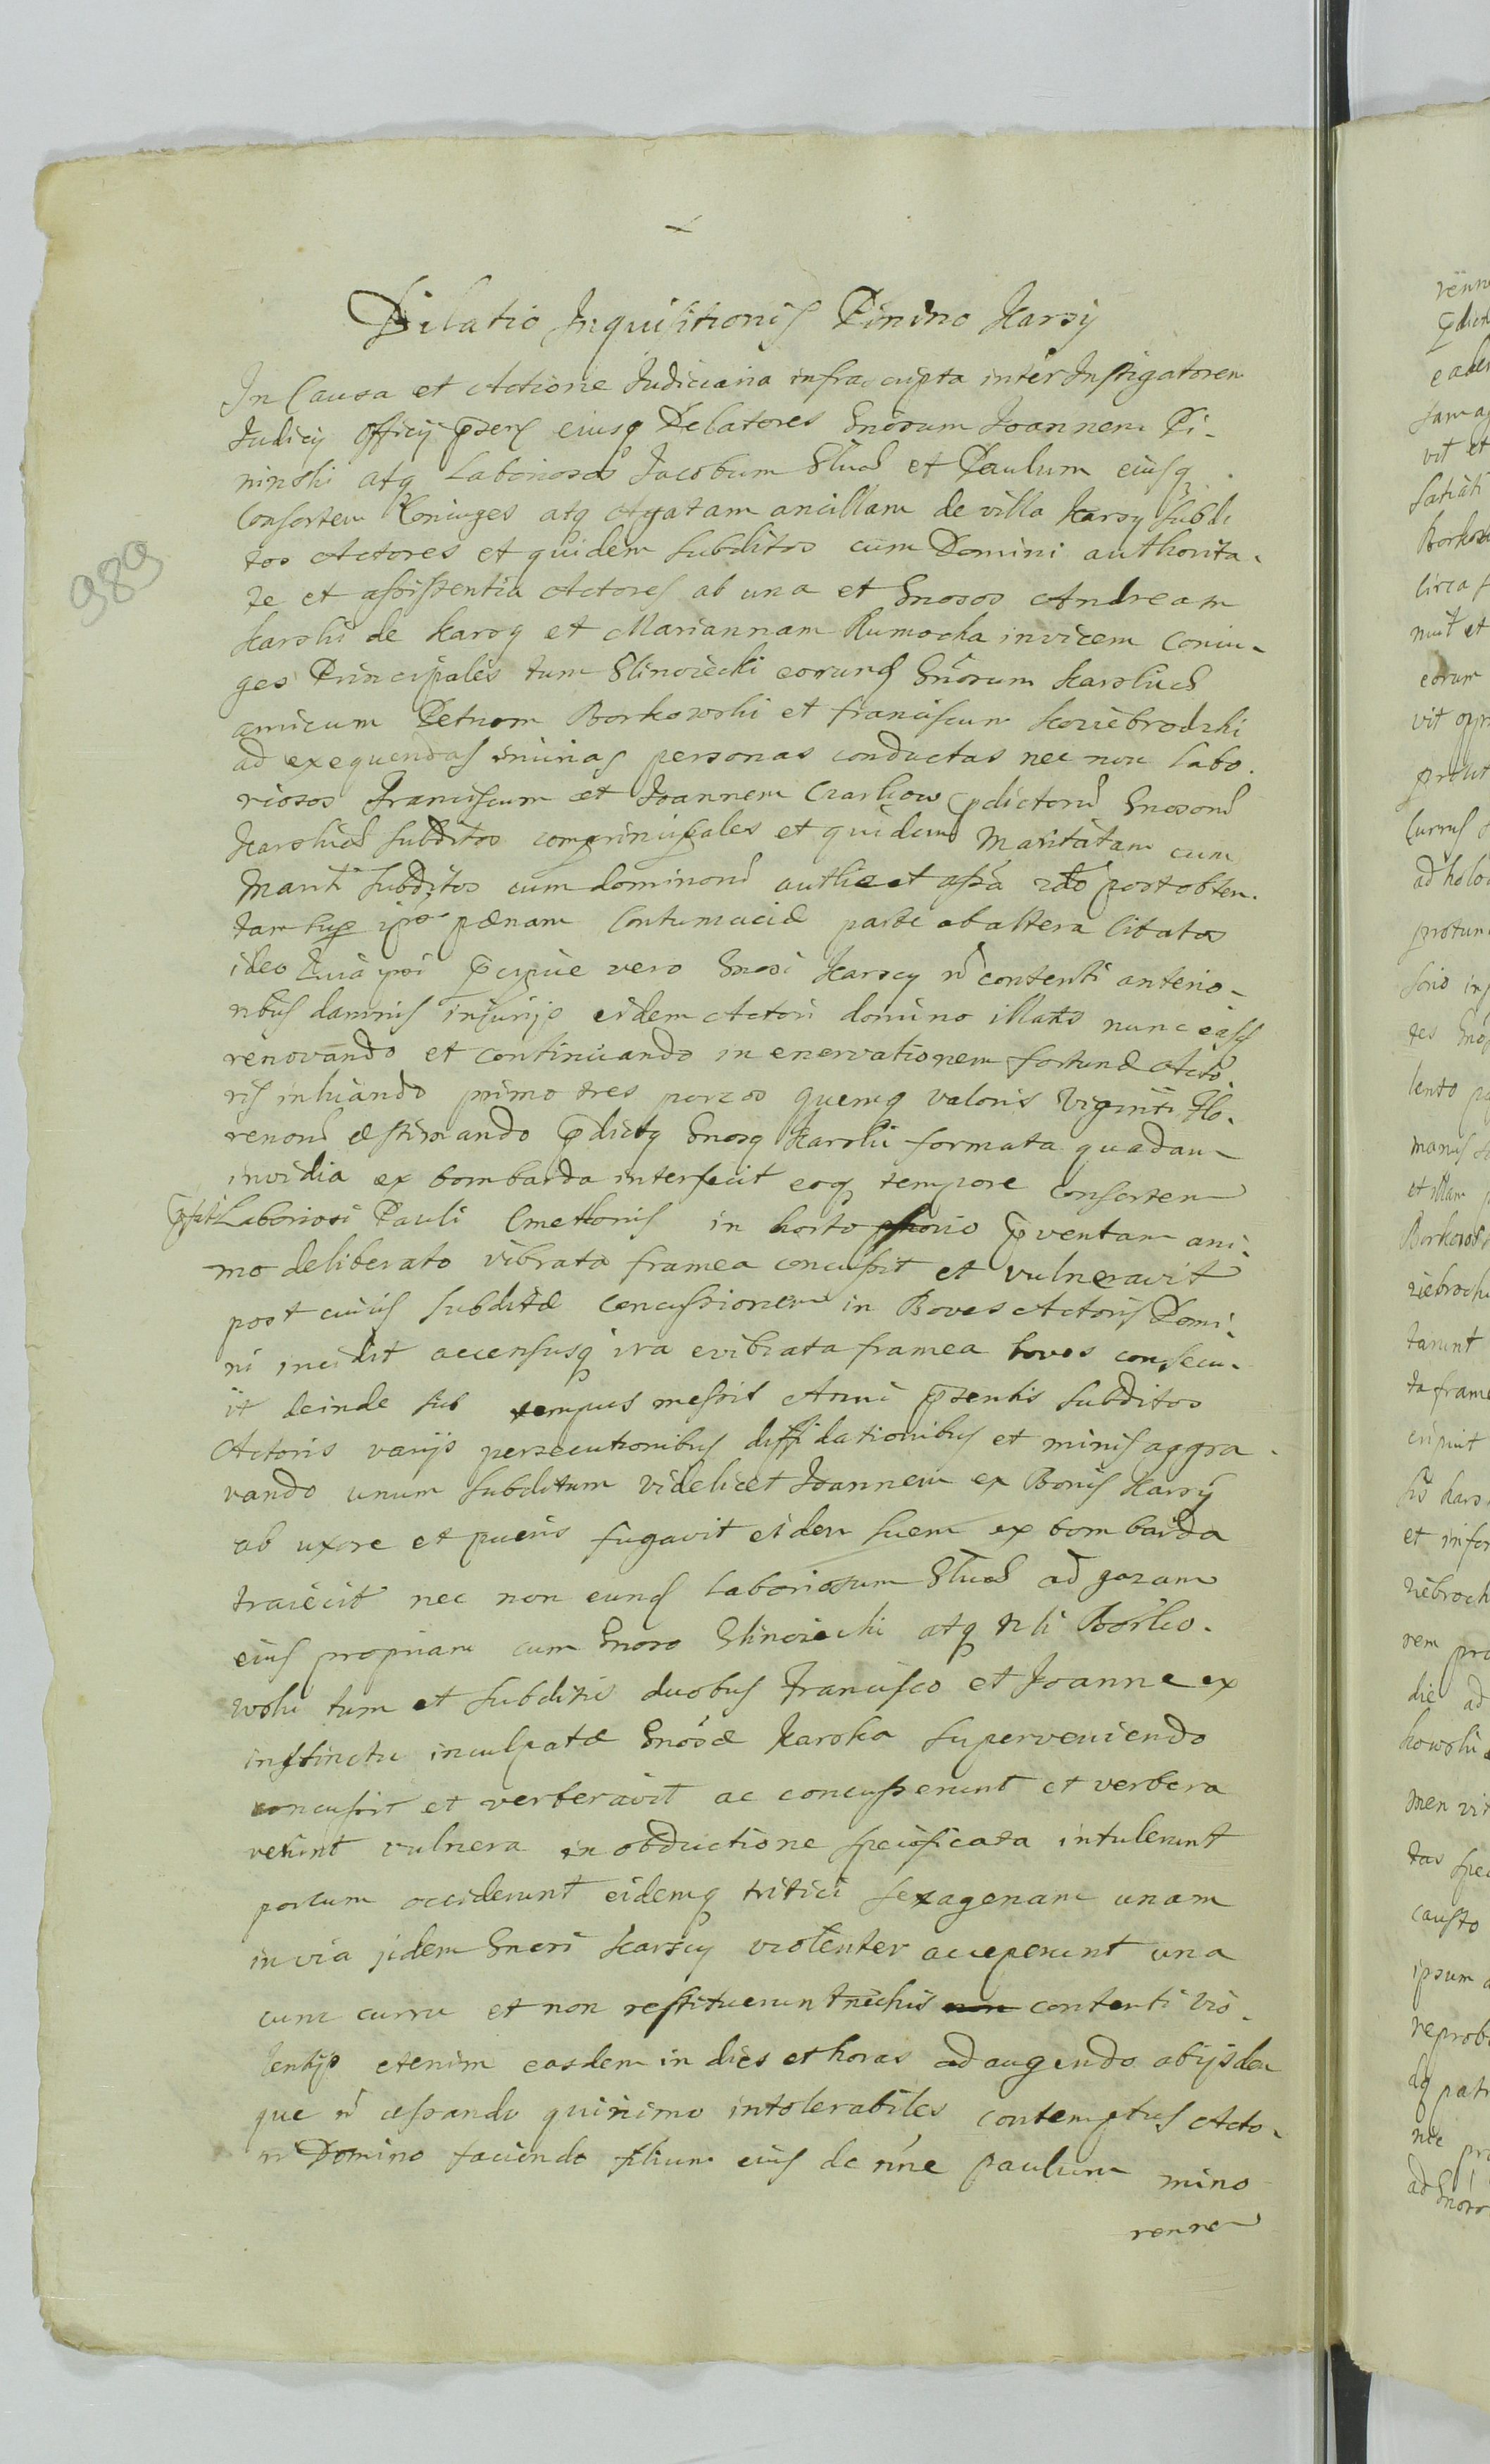 989
Dilatio Inquisitionis Pinino Karsy
In Causa et Actione Judiciaria infrascripta inter Instigatorem
Judicij Officij p̄sens eiusq Delatores Gnosum Joannem Pi-
ninski atq Laboriosos Jacobum Gluch et Paulum eiusq
Consortem Coniuges atq Agatam ancillam de villa Karsy subdi
tos Actores et quidem subditos cum Domini authorita-
te et assistentia Actores ab una et Gnosos Andream
Karski de Karsy et Mariannam Rumocka invicem coniu-
ges Principales tum Glinoiecki eorund Gnosorum Karskich
amicum Petrum Borkowski et Franciscum Koziebrodzki
ad exequendas iniurias personas conductas nec non labo-
riosos Franciscum et Joannem Czaskow p̄dictorū Gnosorū
Karskich subditos comprincipales et quidem Maritatam cum
Marito subditos cum dominorū authte et assa 2do post obten-
tam sup ipso pœnam Contumaciæ parte ab altera Citatos
ideo Quia ipsi p̄cipue vero Gnosi Karscy nō contenti anterio-
ribus damnis injurijs eidem Actori domino illatis nunc easd
renovando et continuando in enervationem fortunæ Acto
ris inhiando primo tres porcos quemq valoris Viginti Flo-
renorū æstimando p̄dictq Gnosq Karski formata quadam
invidia ex bombarda interfecit eoq tempore consortem
Laboriosi Pauli Cmethonis in horto p̄ventam ani-
mo deliberato vibrata framea concussit et vulneravit
post cuius subditæ concussionem in Boves Actoris Domi-
ni incidit accensusq ira evibrata framea boves consecu-
it deinde sub tempus messis Anni p̄sentis subditos
Actoris varijs persecutionibus diffidationibus et minis aggra-
vando unum subditum videlicet Joannem ex Bonis Karsy
ab uxore et pueris fugavit eidem suem ex bombarda
traiecit nec non eund Laboriosum Gluch ad gazam
eius propriam cum Gnoso Glinoiecki atq Nli Borko-
wski tum et subditis duobus Francisco et Joanne ex
instinctu inculpatæ Gnosæ Karska superveniendo
concussit et verberavit ac concusserunt et verbera
verunt vulnera in obductione specificata intulerunt
porcum occiderunt eidemq tritici sexagenam unam
in via ijdem Gnosi Karscy violenter acceperunt una
cum curru et non restituerunt nec his contenti vio-
lentijs etenim easdem in dies et horas adaugendo ab ijsdem
que nō cessando quinimo intolerabiles contemptus Acto-
ri Domino faciendo filium eius de nne Paulum mino
renne